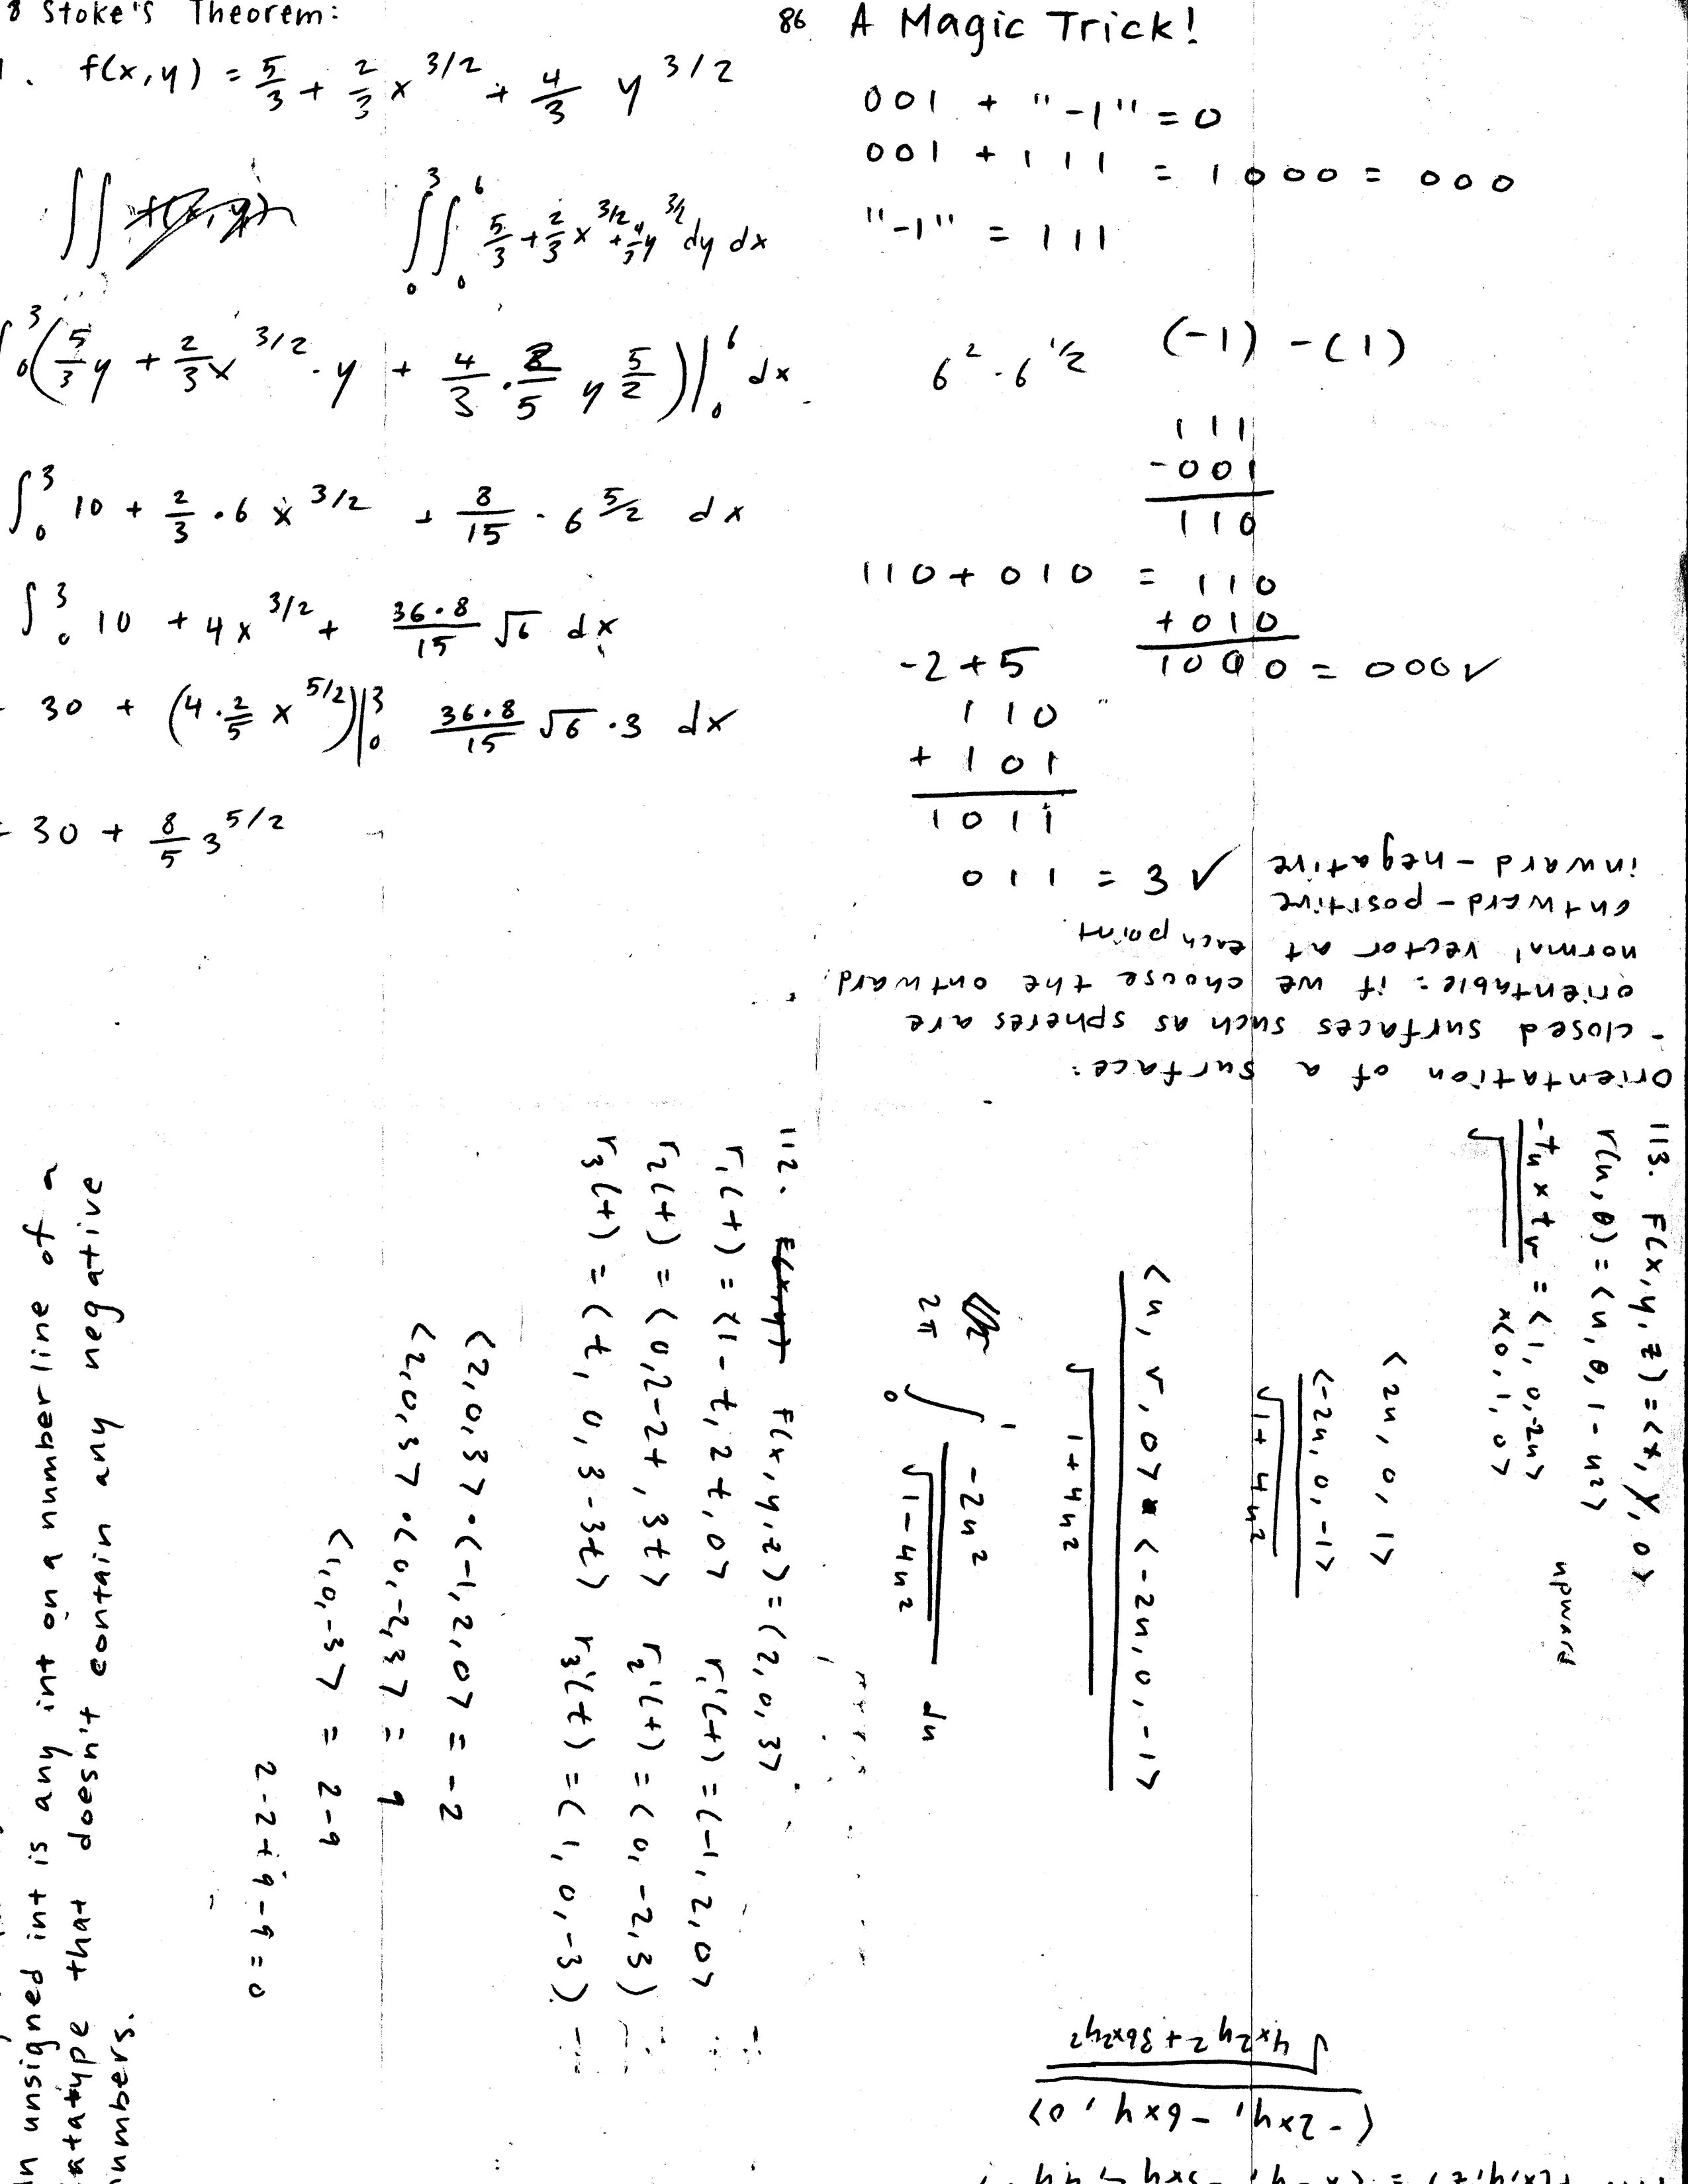 8 Stoke's Theorem:
1. f(x,y) = 5/3 + 2/3 x^3/2 + 4/3 y^3/2
∫∫ f(x,y)
∫_0^3 ∫_0^6 5/3 + 2/3 x^3/2 + 4/3 y^3/2 dy dx
∫_0^3 (5/3 y + 2/3 x^3/2 · y + 4/3 · 2/5 y^5/2)|_0^6 dx
∫_0^3 10 + 2/3 · 6 x^3/2 + 8/15 · 6^5/2 dx
∫_0^3 10 + 4x^3/2 + 36·8/15 √6 dx
30 + (4 · 2/5 x^5/2)|_0^3 36·8/15 √6 · 3 dx
= 30 + 8/5 3^5/2
86 A Magic Trick!
001 + "-1" = 0
001 + 111 = 1000 = 000
"-1" = 111
6^2 · 6^1/2
(-1) - (1)
111
-001
110
110 + 010 = 110
+ 010
1000 = 000 ✓
-2 + 5
110
+ 101
1011
011 = 3 ✓
Orientation of a surface:
- closed surfaces such as spheres are
orientable: if we choose the outward
normal vector at each point
outward - positive
inward - negative
113. F(x,y,z) = <x, y, 0>
r(u,θ) = <u, θ, 1-u2> upward
-tu x tv / √ = <1, 0, -2u>
x<0, 1, 0>
<2u, 0, 1>
<-2u, 0, -1>
√1+4u^2
<u, v, 0> · <-2u, 0, -1>
√1+4u^2
2π ∫_0^1 -2u^2 / √1-4u^2 du
112. F(x,y) F(x,y,z) = <2, 0, 3>
r1(t) = <1-t, 2t, 0> r1'(t) = <-1, 2, 0>
r2(t) = <0, 2-2t, 3t> r2'(t) = <0, -2, 3>
r3(t) = <t, 0, 3-3t> r3'(t) = <1, 0, -3>
<2,0,3> · <-1,2,0> = -2
<2,0,3> · <0,-2,3> = 9
<1,0,-3> = 2-9
2-2+9-9=0
n unsigned int is any int on a number line of a
atatype that doesn't contain any negative
numbers.
<-2xy, -6xy, 0>
√4x2y2 + 36x2y2